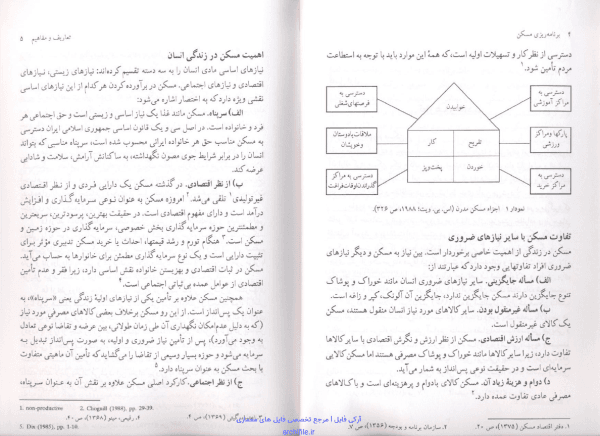 ۴ برنامه‌ریزی مسکن
دسترسی از نظر کار و تسهیلات اولیه است، که همهٔ این موارد باید با توجه به استطاعت
مردم تأمین شود.
دسترسی به
مراکز آموزشی
خوابیدن
دسترسی به
فرصتهای شغلی
پارکها و مراکز
ورزشی
تفریح
کار
ملاقات با دوستان
و خویشان
دسترسی به
مراکز خرید
خوردن
پخت‌وپز
دسترسی به مراکز
گذراندن اوقات فراغت
نمودار ۱ اجزاء مسکن مدرن (اس. بی. ویت؛ ۱۹۸۸، ص ۳۲۶)
تفاوت مسکن با سایر نیازهای ضروری
مسکن در زندگی از اهمیت خاصی برخوردار است. بین نیاز به مسکن و دیگر نیازهای
ضروری افراد تفاوتهایی وجود دارد که عبارتند از:
الف) مسأله جایگزینی. سایر نیازهای ضروری انسان مانند خوراک و پوشاک
تنوع جایگزین دارند مسکن جایگزین ندارد، جایگزین آن آلونک، کپر و زاغه است.
ب) مسأله غیرمنقول بودن. سایر کالاهای مورد نیاز انسان منقول هستند، مسکن
یک کالای غیرمنقول است.
ج) مسأله ارزش اقتصادی. مسکن از نظر ارزش و نگرش اقتصادی با سایر کالاها
تفاوت دارد، زیرا سایر کالاها مانند خوراک و پوشاک مصرفی هستند اما مسکن کالایی
سرمایه‌ای است و در حقیقت نوعی پس‌انداز به شمار می‌آید.
د) دوام و هزینهٔ زیاد آن. مسکن کالای بادوام و پرهزینه‌ای است و با کالاهای
مصرفی عادی تفاوت عمده دارد.
۱. دفتر اقتصاد مسکن (۱۳۷۵)، ص ۲۰. ۲. سازمان برنامه و بودجه (۱۳۵۶)، ص ۷.
تعاریف و مفاهیم ۵
اهمیت مسکن در زندگی انسان
نیازهای اساسی مادی انسان را به سه دسته تقسیم کرده‌اند: نیازهای زیستی، نیازهای
اقتصادی و نیازهای اجتماعی. مسکن در برآورده کردن هر کدام از این نیازهای اساسی
نقشی ویژه دارد که به اختصار اشاره می‌شود:
الف) سرپناه. مسکن مانند غذا یک نیاز اساسی و زیستی است و حق اجتماعی هر
فرد و خانواده است. در اصل سی و یک قانون اساسی جمهوری اسلامی ایران دسترسی
به مسکن مناسب حق هر خانواده ایرانی محسوب شده است، سرپناه مناسبی که بتواند
انسان را در برابر شرایط جوی مصون نگهداشته، به ساکنانش آرامش، سلامت و شادابی
عرضه کند.
ب) از نظر اقتصادی. در گذشته مسکن یک دارایی فردی و از نظر اقتصادی
غیرتولیدی۱ تلقی می‌شد.۲ امروزه مسکن به عنوان نوعی سرمایه‌گذاری و افزایش
درآمد است و دارای مفهوم اقتصادی است. در حقیقت بهترین، پرسودترین، سریعترین
و مطمئنترین حوزه سرمایه‌گذاری بخش خصوصی، سرمایه‌گذاری در حوزه زمین و
مسکن است.۳ هنگام تورم و رشد قیمتها، احداث یا خرید مسکن تدبیری مؤثر برای
تثبیت دارایی است و یک نوع سرمایه‌گذاری مطمئن برای خانوارها به حساب می‌آید.
مسکن در ثبات اقتصادی و بهزیستن خانواده نقش اساسی دارد، زیرا فقر و عدم تأمین
اقتصادی از عوامل عمده بی‌ثباتی اجتماعی است.۴
همچنین مسکن علاوه بر تأمین یکی از نیازهای اولیهٔ زندگی یعنی «سرپناه»، به
عنوان یک پس‌انداز است. از این رو مسکن برخلاف بعضی کالاهای مصرفی مورد نیاز
(که به دلیل عدم امکان نگهداری آن طی زمان طولانی، بین عرضه و تقاضا نوعی تعادل
به وجود می‌آورد)، پس از تأمین نیاز ضروری و اولیه، به صورت پس‌انداز تبدیل به
سرمایه می‌شود و حوزه بسیار وسیعی از تقاضا را می‌گشاید که تأمین آن ماهیتی متفاوت
با بحث مسکن به عنوان سرپناه دارد.۵
ج) از نظر اجتماعی. کارکرد اصلی مسکن علاوه بر نقش آن به عنوان سرپناه،
1. non-productive 2. Choguill (1988), pp. 29-39.
(۱۳۵۹)، ص ۴. ۴. رفیعی، مینو (۱۳۶۸)، ص ۲۰.
5. Din (1985), pp. 1-18.
آرکی فایل | مرجع تخصصی فایل های معماری
archifile.ir